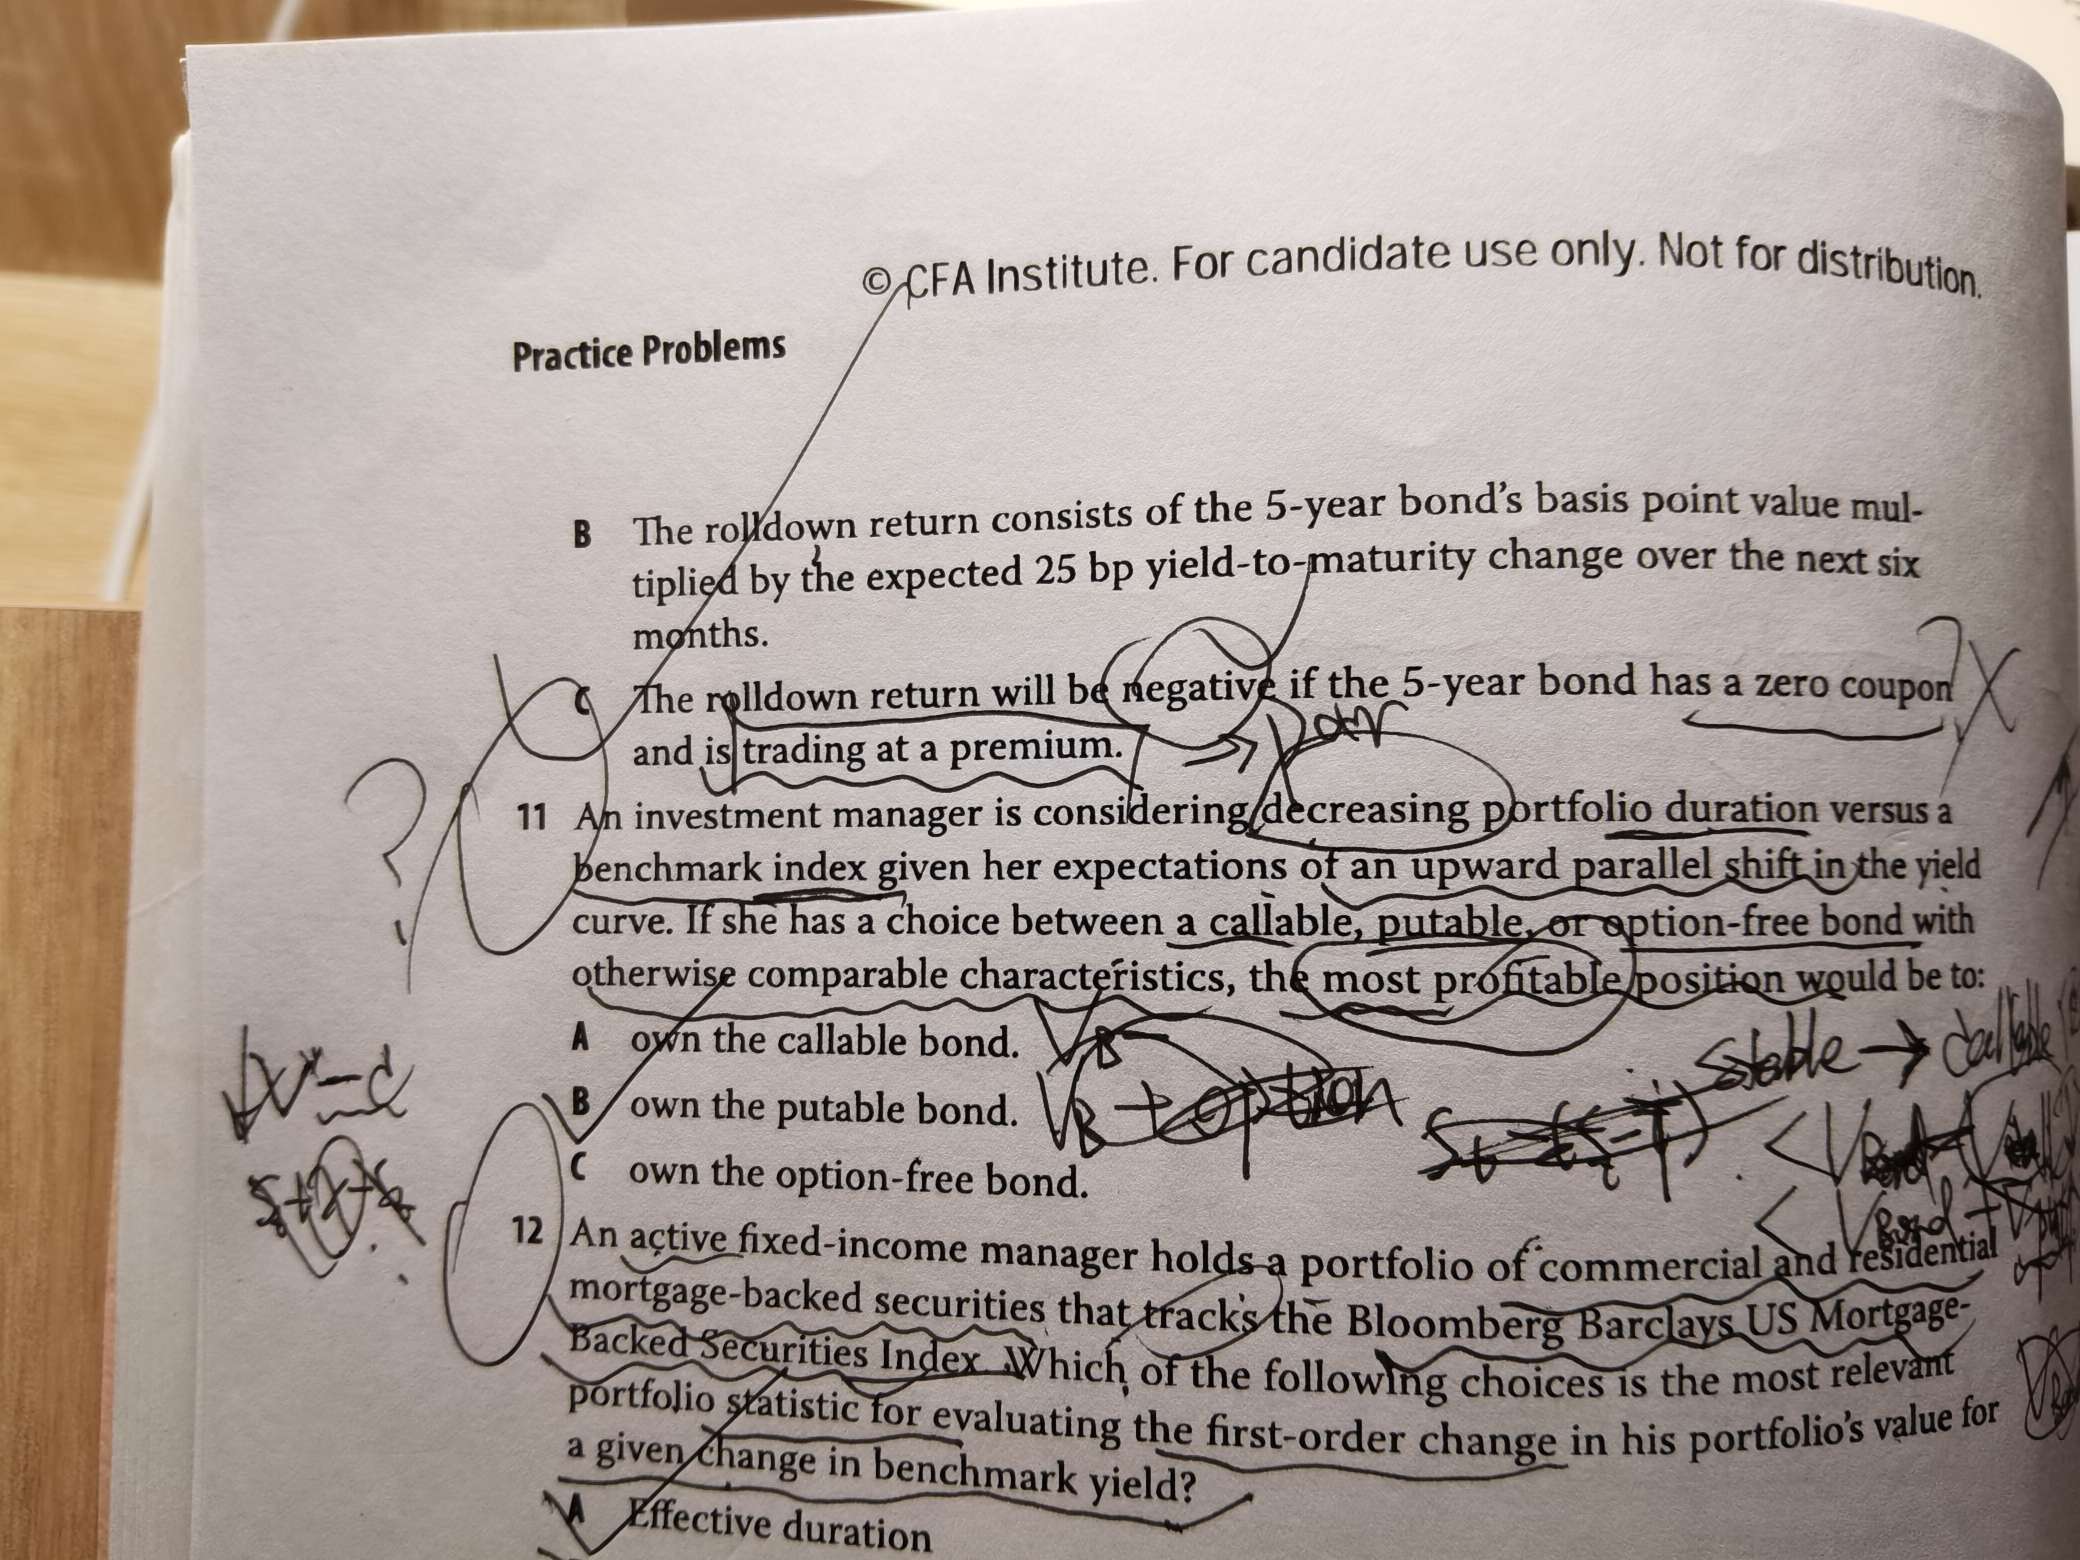 © CFA Institute. For candidate use only. Not for distribution.
Practice Problems
B The rolldown return consists of the 5-year bond's basis point value mul-
tiplied by the expected 25 bp yield-to-maturity change over the next six
months.
C The rolldown return will be negative if the 5-year bond has a zero coupon
and is trading at a premium.
11 An investment manager is considering decreasing portfolio duration versus a
benchmark index given her expectations of an upward parallel shift in the yield
curve. If she has a choice between a callable, putable, or option-free bond with
otherwise comparable characteristics, the most profitable position would be to:
A own the callable bond. VB
B own the putable bond. VB + option
C own the option-free bond.
Stable → callable
12 An active fixed-income manager holds a portfolio of commercial and residential
mortgage-backed securities that tracks the Bloomberg Barclays US Mortgage-
Backed Securities Index. Which of the following choices is the most relevant
portfolio statistic for evaluating the first-order change in his portfolio's value for
a given change in benchmark yield?
A Effective duration